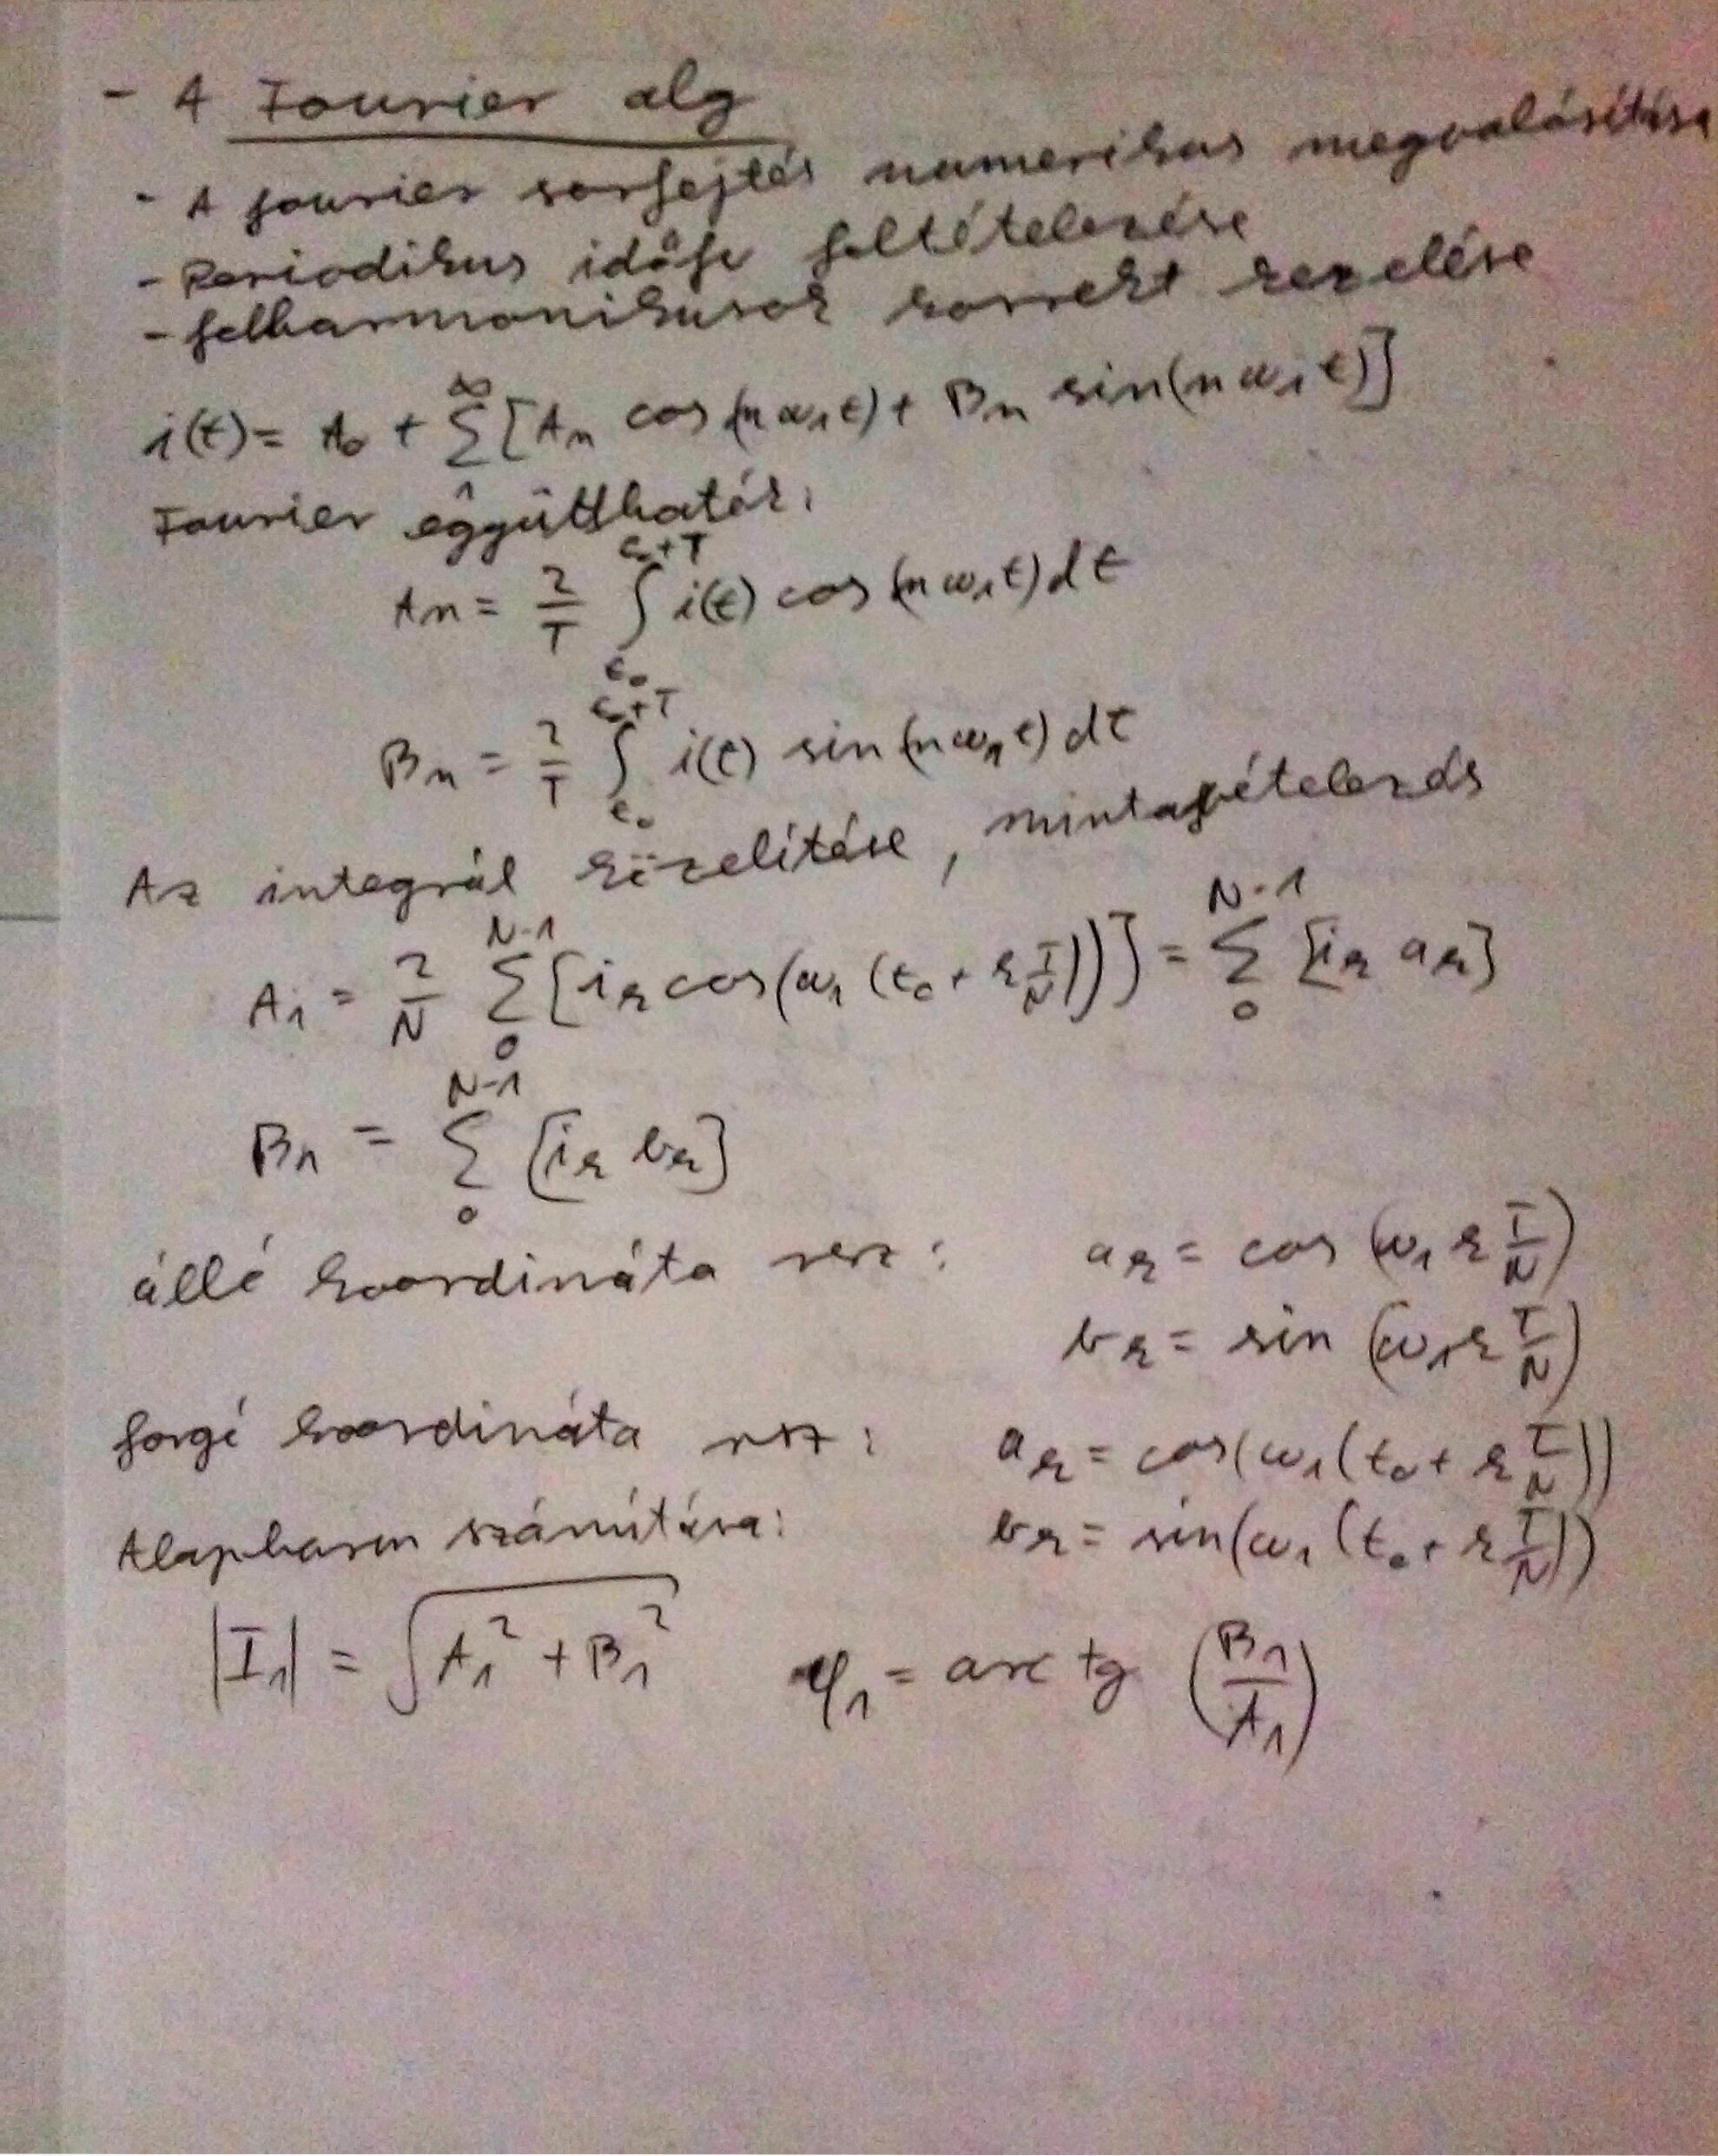 - A Fourier alg
- A fourier sorfejtés numerikus megvalósítása
- Periodikus időfv feltételezése
- felharmonikusok korrekt kezelése
i(t) = A₀ + ∑₁^∞ [Aₙ cos(nω₁t) + Bₙ sin(nω₁t)]
Fourier együtthatók:
Aₙ = 2/T ∫_{t₀}^{t₀+T} i(t) cos(nω₁t) dt
Bₙ = 2/T ∫_{t₀}^{t₀+T} i(t) sin(nω₁t) dt
Az integrál közelítése, mintavételezés
A₁ = 2/N ∑₀^{N-1} [iₖ cos(ω₁(t₀ + k T/N))] = ∑₀^{N-1} [iₖ aₖ]
B₁ = ∑₀^{N-1} [iₖ bₖ]
álló koordináta rsz: aₖ = cos(ω₁ k T/N)
bₖ = sin(ω₁ k T/N)
forgó koordináta rsz: aₖ = cos(ω₁(t₀ + k T/N))
Alapharm számítása: bₖ = sin(ω₁(t₀ + k T/N))
|I₁| = √(A₁² + B₁²) φ₁ = arc tg (B₁/A₁)